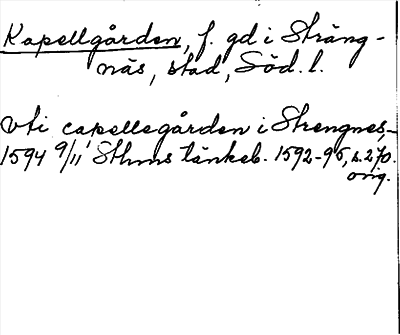 Kapellgården, f. gd i Sträng-
näs, stad, Söd. l.
Vti capellegården i Strengnes,
1594 9/11 Sthms tänkeb. 1592-95, s. 270.
orig.